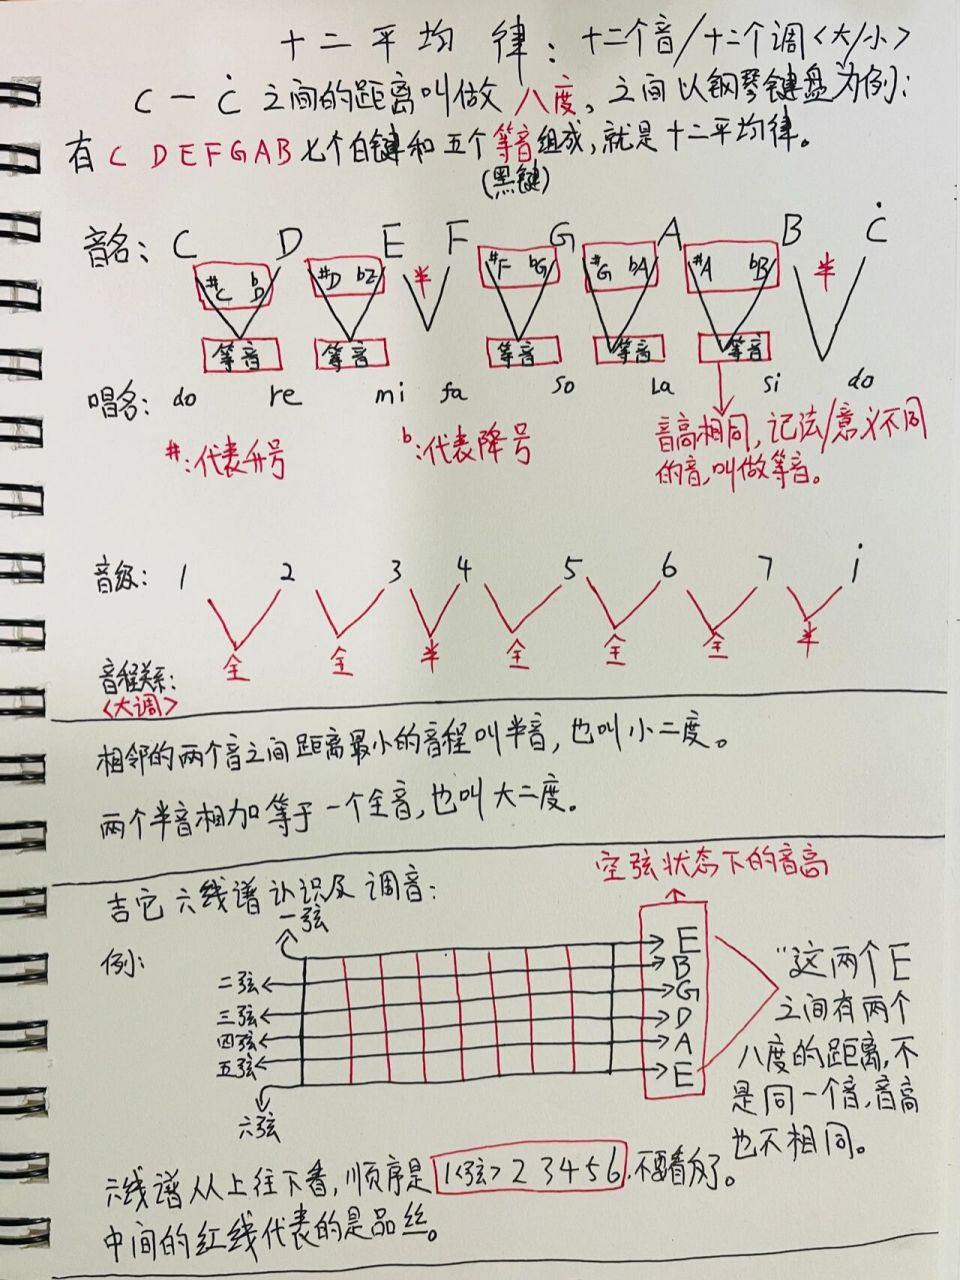 十二平均律：十二个音/十二个调<大/小>
C — Ċ 之间的距离叫做八度。之间以钢琴键盘为例：
有 C D E F G A B 七个白键和五个等音组成，就是十二平均律。
(黑键)
音名： C D E F G A B Ċ
#C bD #D bE 半 #F bG #G bA #A bB 半
等音 等音 等音 等音 等音
唱名： do re mi fa so La si do
#：代表升号 b：代表降号 音高相同，记法/意义不同
的音，叫做等音。
音级： 1 2 3 4 5 6 7 i
全 全 半 全 全 全 半
音程关系：
<大调>
相邻的两个音之间距离最小的音程叫半音，也叫小二度。
两个半音相加等于一个全音，也叫大二度。
空弦状态下的音高
吉它六线谱认识及调音：
一弦
例：
E
二弦 B
G
三弦 D
四弦 A
五弦 E
六弦
“这两个E
之间有两个
八度的距离，不
是同一个音，音高
也不相同。
六线谱从上往下看，顺序是 1<弦> 2 3 4 5 6，不要看反了。
中间的红线代表的是品丝。